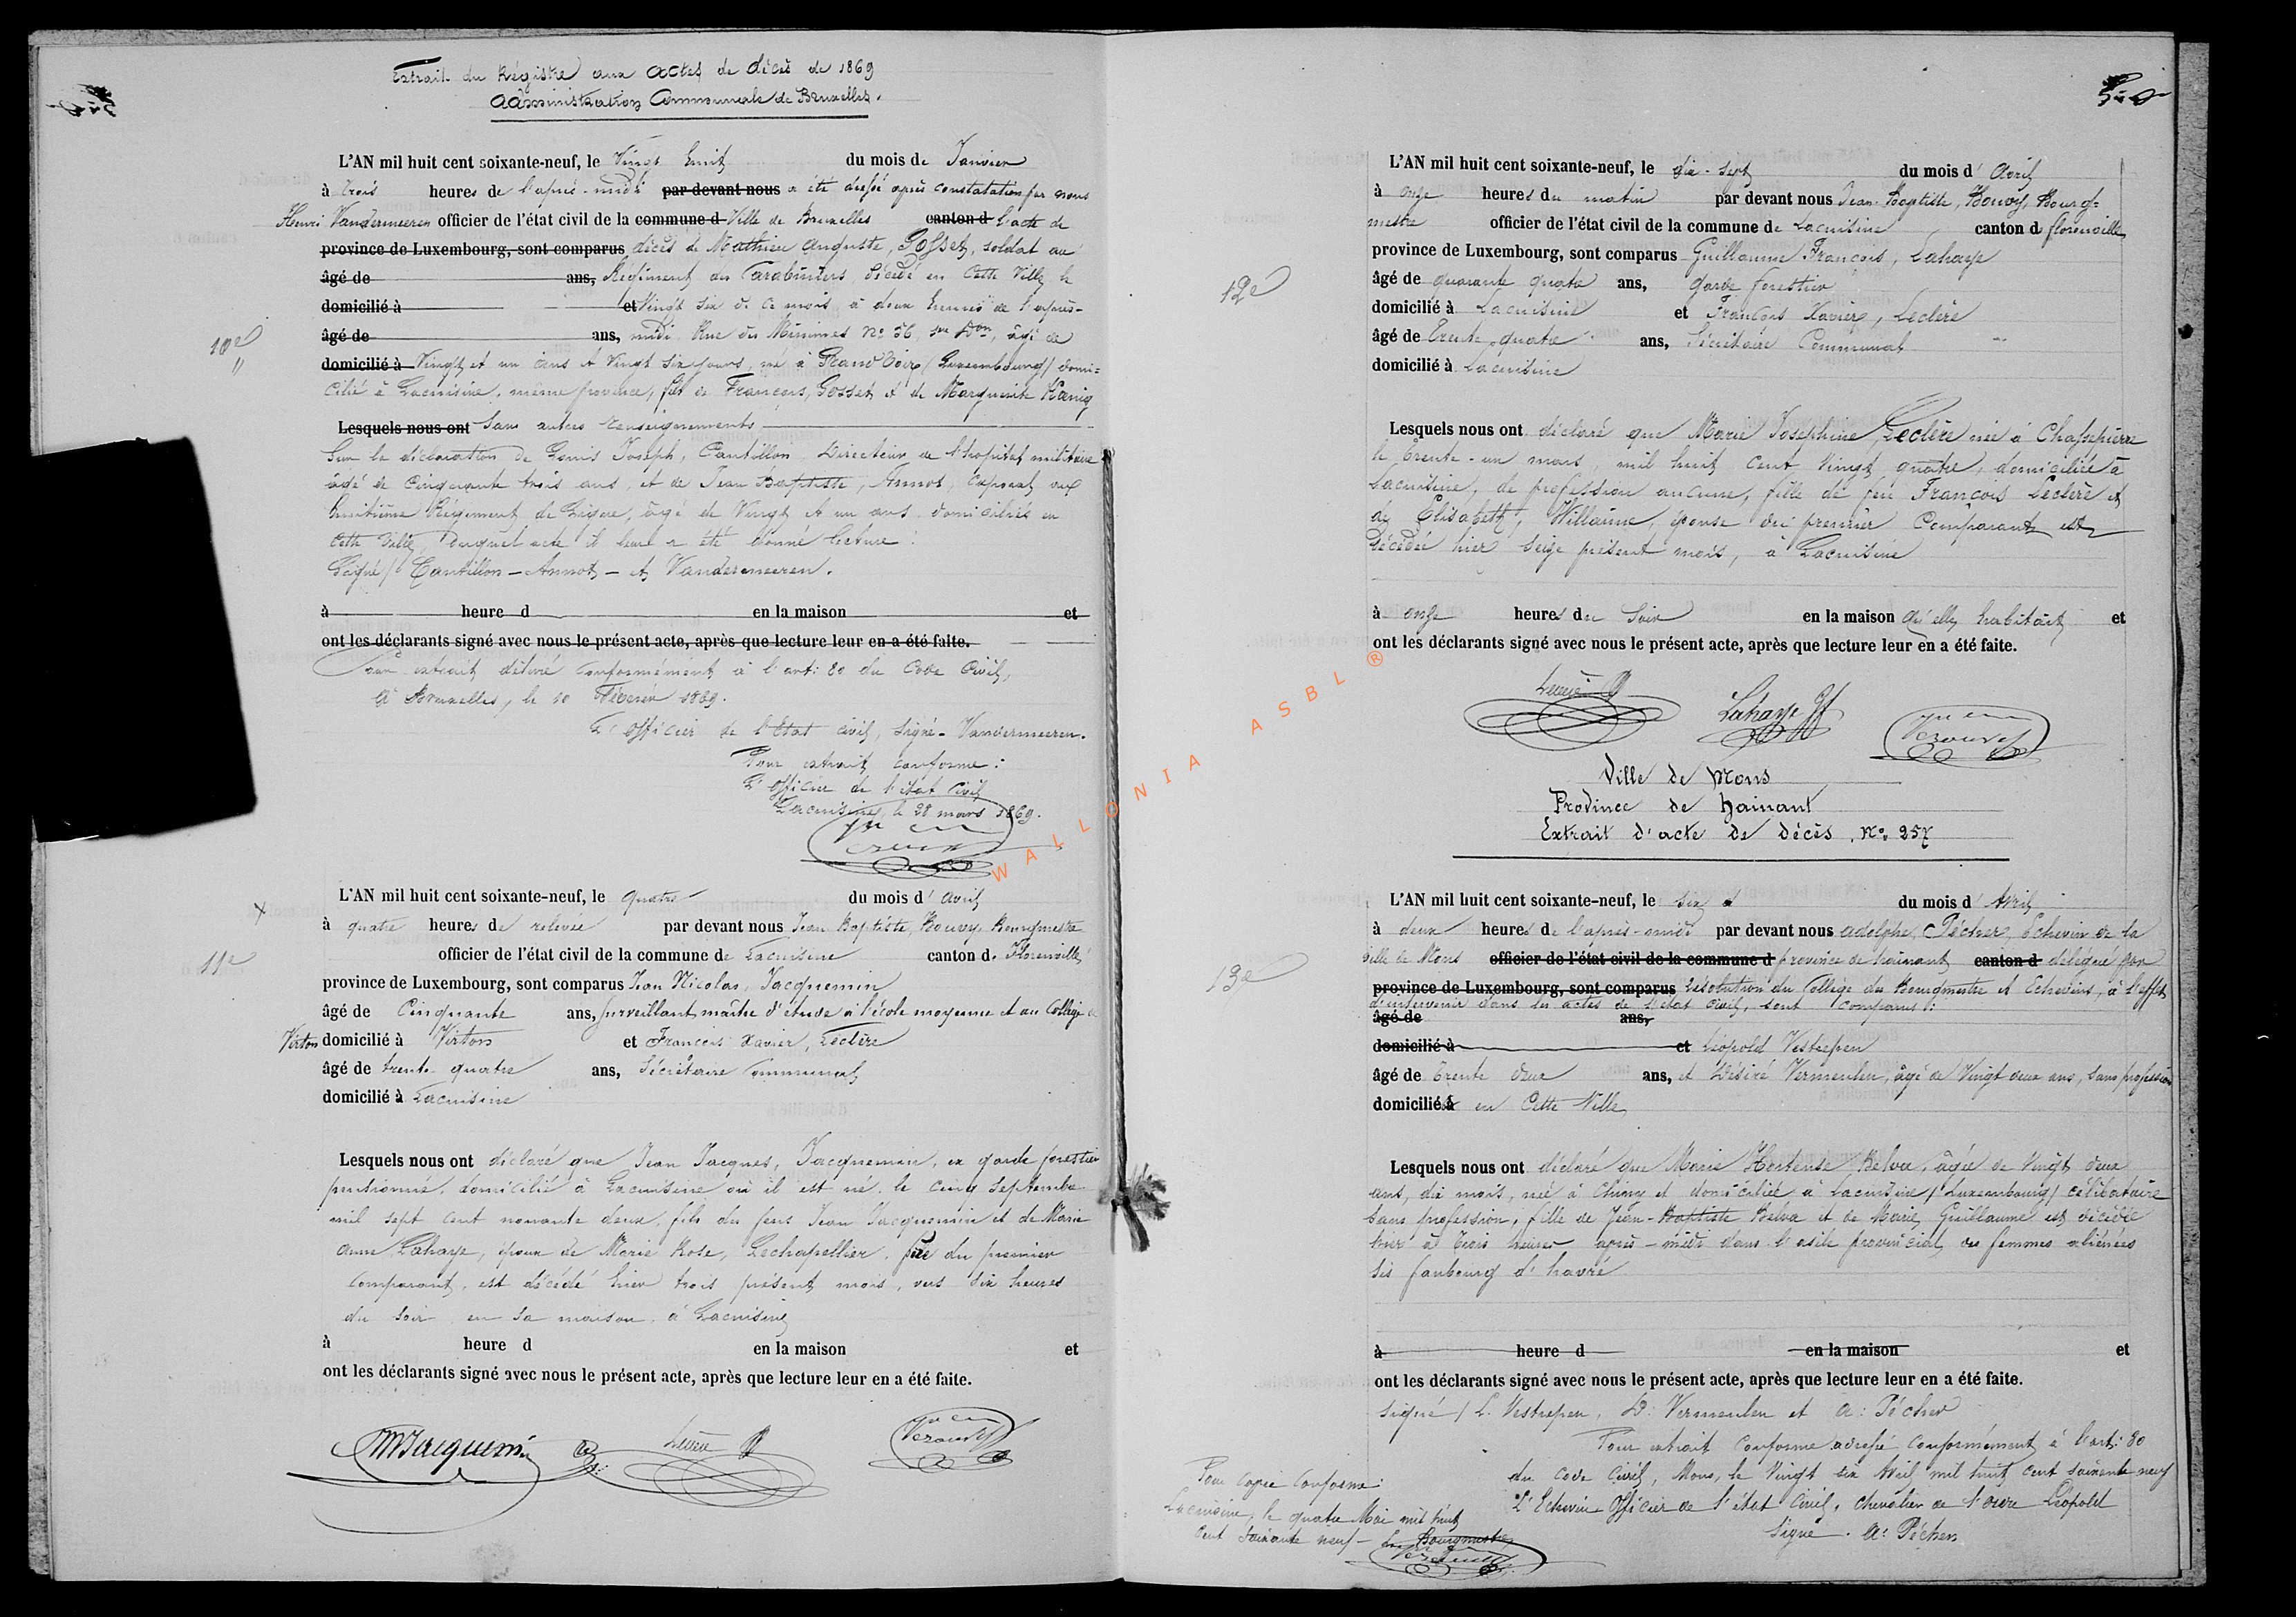 Extrait du Régistre aux actes de décès de 1869
Administration Communale de Bruxelles.
10e
L'AN mil huit cent soixante-neuf, le Vingt huit du mois de Janvier
à trois heures de l'après-midi par devant nous a été dressé après constatation par nous
Henri Vandermeeren officier de l'état civil de la commune d Ville de Bruxelles canton d l'acte de
province de Luxembourg, sont comparus décès de Mathieu Auguste, Gosset, soldat au
âgé de ans, Régiment des Carabiniers décédé en cette Ville le
domicilié à et Vingt six de ce mois, à deux heures de l'après-
âgé de ans, midi, Rue des Minimes No 36, âgé de
domicilié à Vingt et un ans et Vingt six jours, né à Grand Voir (Luxembourg) domi-
cilié à Lacuisine, même province, fils de François, Gosset et de Marguerite Kœnig
Lesquels nous ont Sans autres renseignements
Sur la déclaration de Louis Joseph, Cantillon Directeur de l'hopital militaire
âgé de Cinquante trois ans, et de Jean Baptiste, Annot, caporal au
huitième Régiment de Ligne, âgé de Vingt et un ans domiciliés en
cette Ville, Duquel acte il leur a été donné lecture.
Signé/ Cantillon - Annot - et Vandermeeren.
à heure d en la maison et
ont les déclarants signé avec nous le présent acte, après que lecture leur en a été faite.
Pour extrait délivré conformément à l'art: 80 du Code Civil,
à Bruxelles, le 10 Février 1869.
L'officier de l'Etat civil, signé - Vandermeeren.
Pour extrait conforme:
L'officier de l'état Civil
Lacuisine, le 28 mars 1869.
11e
L'AN mil huit cent soixante-neuf, le quatre du mois d' avril
à quatre heures de relevée par devant nous Jean Baptiste, Rouvoy, Bourgmestre
officier de l'état civil de la commune de Lacuisine canton de Florenville
province de Luxembourg, sont comparus Jean Nicolas, Jacquemin
âgé de Cinquante ans, surveillant, maître d'étude à l'école moyenne et au Collège de
Virton domicilié à Virton et François Xavier, Leclère
âgé de trente-quatre ans, Sécrétaire Communal
domicilié à Lacuisine
Lesquels nous ont déclaré que Jean Jacques, Jacquemin, ex garde forestier
pentionné, domicilié à Lacuisine où il est né, le cinq Septembre
mil sept cent nonante deux, fils des feus Jean Jacquemin et de Marie
Anne, Lahaye, époux de Marie Rose, Lechapellier, père du premier
comparant, est décédé hier trois présent mois, vers six heures
du soir en sa maison à Lacuisine
à heure d en la maison et
ont les déclarants signé avec nous le présent acte, après que lecture leur en a été faite.
Jacquemin Leclère
12e
L'AN mil huit cent soixante-neuf, le dix-sept du mois d' Avril
à onze heures du matin par devant nous Jean-Baptiste, Rouvoy, Bourg-
mestre officier de l'état civil de la commune de Lacuisine canton d florenville
province de Luxembourg, sont comparus Guillaume François, Lahaye
âgé de quarante quatre ans, Garde forestier
domicilié à Lacuisine et François Xavier, Leclère
âgé de trente quatre ans, Sécrétaire Communal
domicilié à Lacuisine
Lesquels nous ont déclaré que Marie Joséphine, Leclère née à Chassepierre
le trente-un mars, mil huit cent vingt quatre, domiciliée à
Lacuisine, de profession aucune, fille de feu François Leclère et
de Elisabeth, Willaime, épouse du premier Comparant est
décédée hier seize présent mois, à Lacuisine
à onze heures du Soir en la maison qu'elle habitait et
ont les déclarants signé avec nous le présent acte, après que lecture leur en a été faite.
Leclère Lahaye Gf
Ville de Mons
Province de Hainaut
Extrait d'acte de décès, No 257
13e
L'AN mil huit cent soixante-neuf, le six du mois d Avril
à deux heures de l'après-midi par devant nous Adolphe, Pécher, Echevin de la
ville de Mons officier de l'état civil de la commune d province de hainaut canton d délégué par
province de Luxembourg, sont comparus résolution du Collège des Bourgmestre et Echevins, à l'effet
d'intervenir dans les actes de l'état civil, sont comparus:
âgé de ans,
domicilié à et Léopold Vestrepen
âgé de trente deux ans, et Désiré Vermeulen, âgé de Vingt deux ans, sans profession
domicilié à en Cette Ville
Lesquels nous ont déclaré que Marie Hortense Belva, âgée de vingt deux
ans, dix mois, née à Chimy et domiciliée à Lacuisine (Luxembourg) célibataire
sans profession, fille de Jean-Baptiste Belva et de Marie, Guillaume est décédée
hier à trois heures après-midi dans l'asile provincial des femmes aliénées
sis faubourg d'havré
à heure d en la maison et
ont les déclarants signé avec nous le présent acte, après que lecture leur en a été faite.
Signé / L. Vestrepen, D: Vermeulen et A: Pécher
Pour extrait conforme adressé conformément à l'art: 80
du Code Civil, Mons, le Vingt six Avril mil huit cent soixante neuf
L'Echevin Officier de l'état Civil, chevalier de l'ordre Léopold
Signé. A: Pécher
Pour copie conforme:
Lacuisine, le quatre Mai mil huit
cent soixante neuf - Le Bourgmestre
WALLONIA ASBL ®